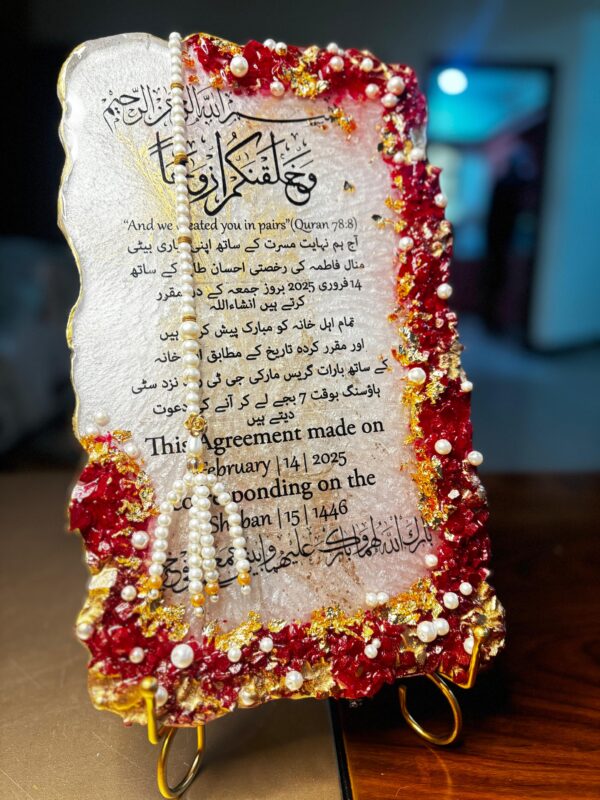 بسم الله الرحمن الرحيم
وَخَلَقْنَٰكُمْ أَزْوَٰجًا
"And we created you in pairs"(Quran 78:8)
آج ہم نہایت مسرت کے ساتھ اپنی پیاری بیٹی
منال فاطمہ کی رخصتی احسان طارق کے ساتھ
14 فروری 2025 بروز جمعہ کے دن مقرر
کرتے ہیں انشاءاللہ
تمام اہل خانہ کو مبارک پیش کرتے ہیں
اور مقرر کردہ تاریخ کے مطابق اہل خانہ
کے ساتھ بارات گریس مارکی جی ٹی روڈ نزد سٹی
ہاؤسنگ بوقت 7 بجے لے کر آنے کی دعوت
دیتے ہیں
This Agreement made on
February | 14 | 2025
corresponding on the
Shaban | 15 | 1446
بارك الله لهما وبارك عليهما وجمع